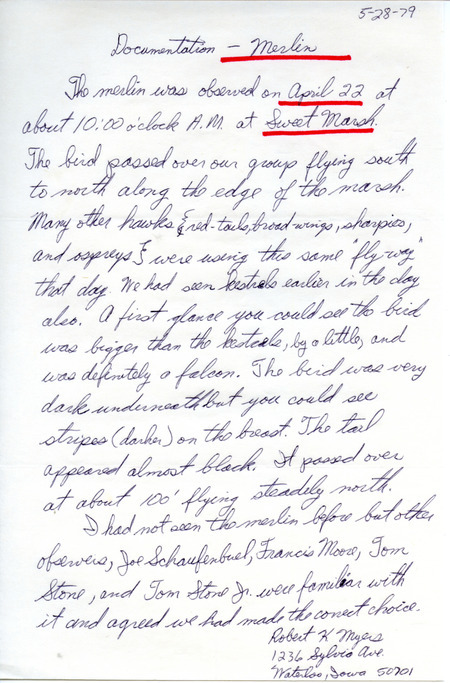 5-28-79
Documentation - Merlin
The merlin was observed on April 22 at
about 10:00 o'clock A.M. at Sweet Marsh.
The bird passed over our group flying south
to north along the edge of the marsh.
Many other hawks {red-tails, broad-wings, sharpies,
and ospreys} were using this same "fly-way"
that day. We had seen kestrels earlier in the day
also. A first glance you could see the bird
was bigger than the kestrels, by a little, and
was definitely a falcon. The bird was very
dark underneath but you could see
stripes (darker) on the breast. The tail
appeared almost black. It passed over
at about 100' flying steadily north.
I had not seen the merlin before but other
observers, Joe Schaufenbuel, Francis Moore, Tom
Stone, and Tom Stone Jr. were familiar with
it and agreed we had made the correct choice.
Robert K Myers
1236 Sylvia Ave.
Waterloo, Iowa 50701